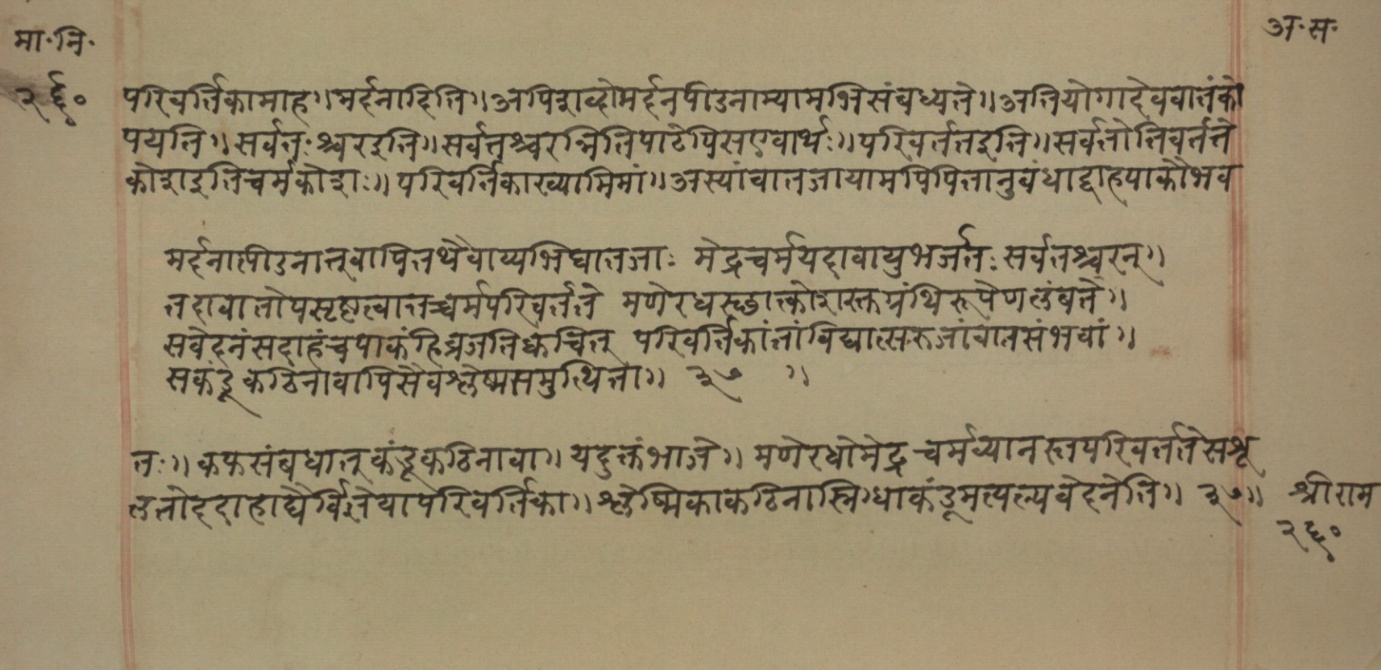 मा॰नि॰
अ॰स॰
२६०
परिवर्तिकामाह॥मर्दनादिति॥अपिशब्दोमर्दनपीडनाभ्यामभिसंबध्यते॥अतियोगादेववातंको
पयति॥सर्वतःश्चरइति॥सर्वतश्चरन्नितिपाठेपिसएवार्थः॥परिवर्ततइति॥सर्वतोतिवर्तते
कोशइतिचर्मकोशः॥परिवर्तिकाख्यामिमां॥अस्यांवातजायामपिपित्तानुबंधाद्दाहपाकौभव
मर्दनात्पीडनात्त्वापितथैवाप्यभिघातजाः मेढ्रचर्मयदावायुर्भजतेः सर्वतश्चरन्॥
तदावातोपसृष्टत्वात्तच्चर्मपरिवर्तते मणेरधस्छात्कोशस्क्तग्रंथिरूपेणलंबते॥
सवेदनंसदाहंचपाकंहिव्रजतिक्वचित् परिवर्तिकांतांविद्यात्सरुजांवातसंभवां॥
सकंडूकठिनावापिसैवश्लेष्मसमुत्थिता॥ ३७ ॥
तः॥कफसंबधात्कंडूकठिनावा॥यदुक्तंभोजे॥मणेरधोमेढ्रचर्मव्यानस्तपरिवर्ततेसशू
लतोददाहाद्यैर्विज्ञेयापरिवर्तिका॥श्लेष्मिकाकठिनास्निग्धाकंडूमत्यल्पवेदनेति॥३७॥ श्रीराम
२६०